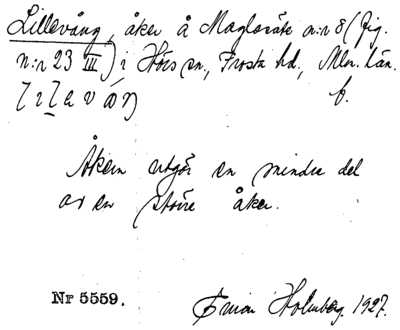 Lillevång, åker å Magleröte n:r 8 (fig.
n:r 23 III) i Hörs sn, Frosta hd, Mlm. län.
f.
Åkern utgör en mindre del
av en större åker.
Nr 5559.
Holmberg. 1927.